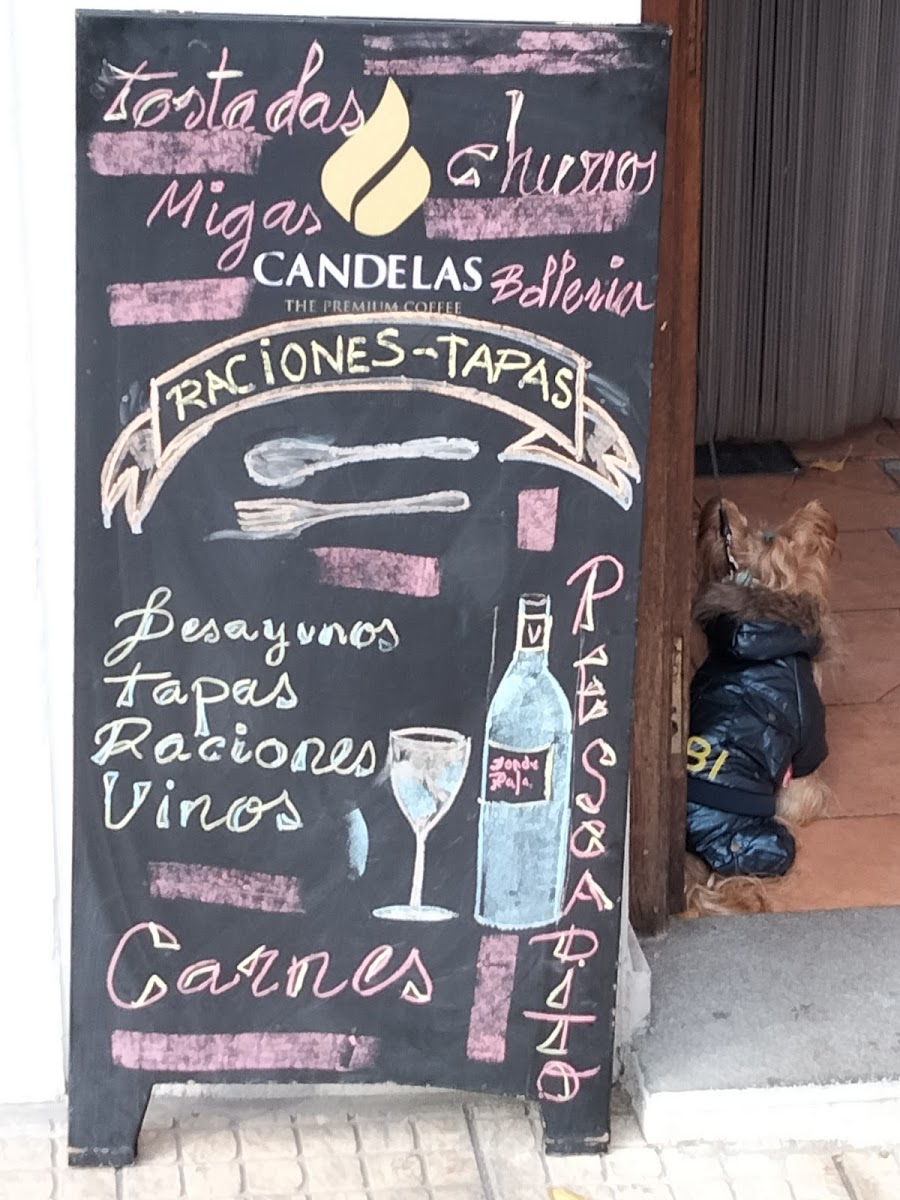 Tostadas
Churros
Migas
CANDELAS
THE PREMIUM COFFEE
Bolleria
RACIONES-TAPAS
Desayunos
Tapas
Raciones
Vinos
V
PESCADITO
Carnes
81